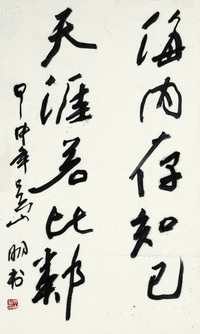 海内存知己
天涯若比邻
甲申年吴山明书